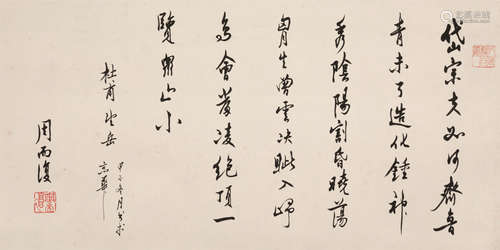 岱宗夫如何齊魯
青未了造化鍾神
秀陰陽割昏曉蕩
胷生曾雲決眦入歸
鳥會當凌絕頂一
覽眾山小
杜甫望岳
甲子
京華
周而復